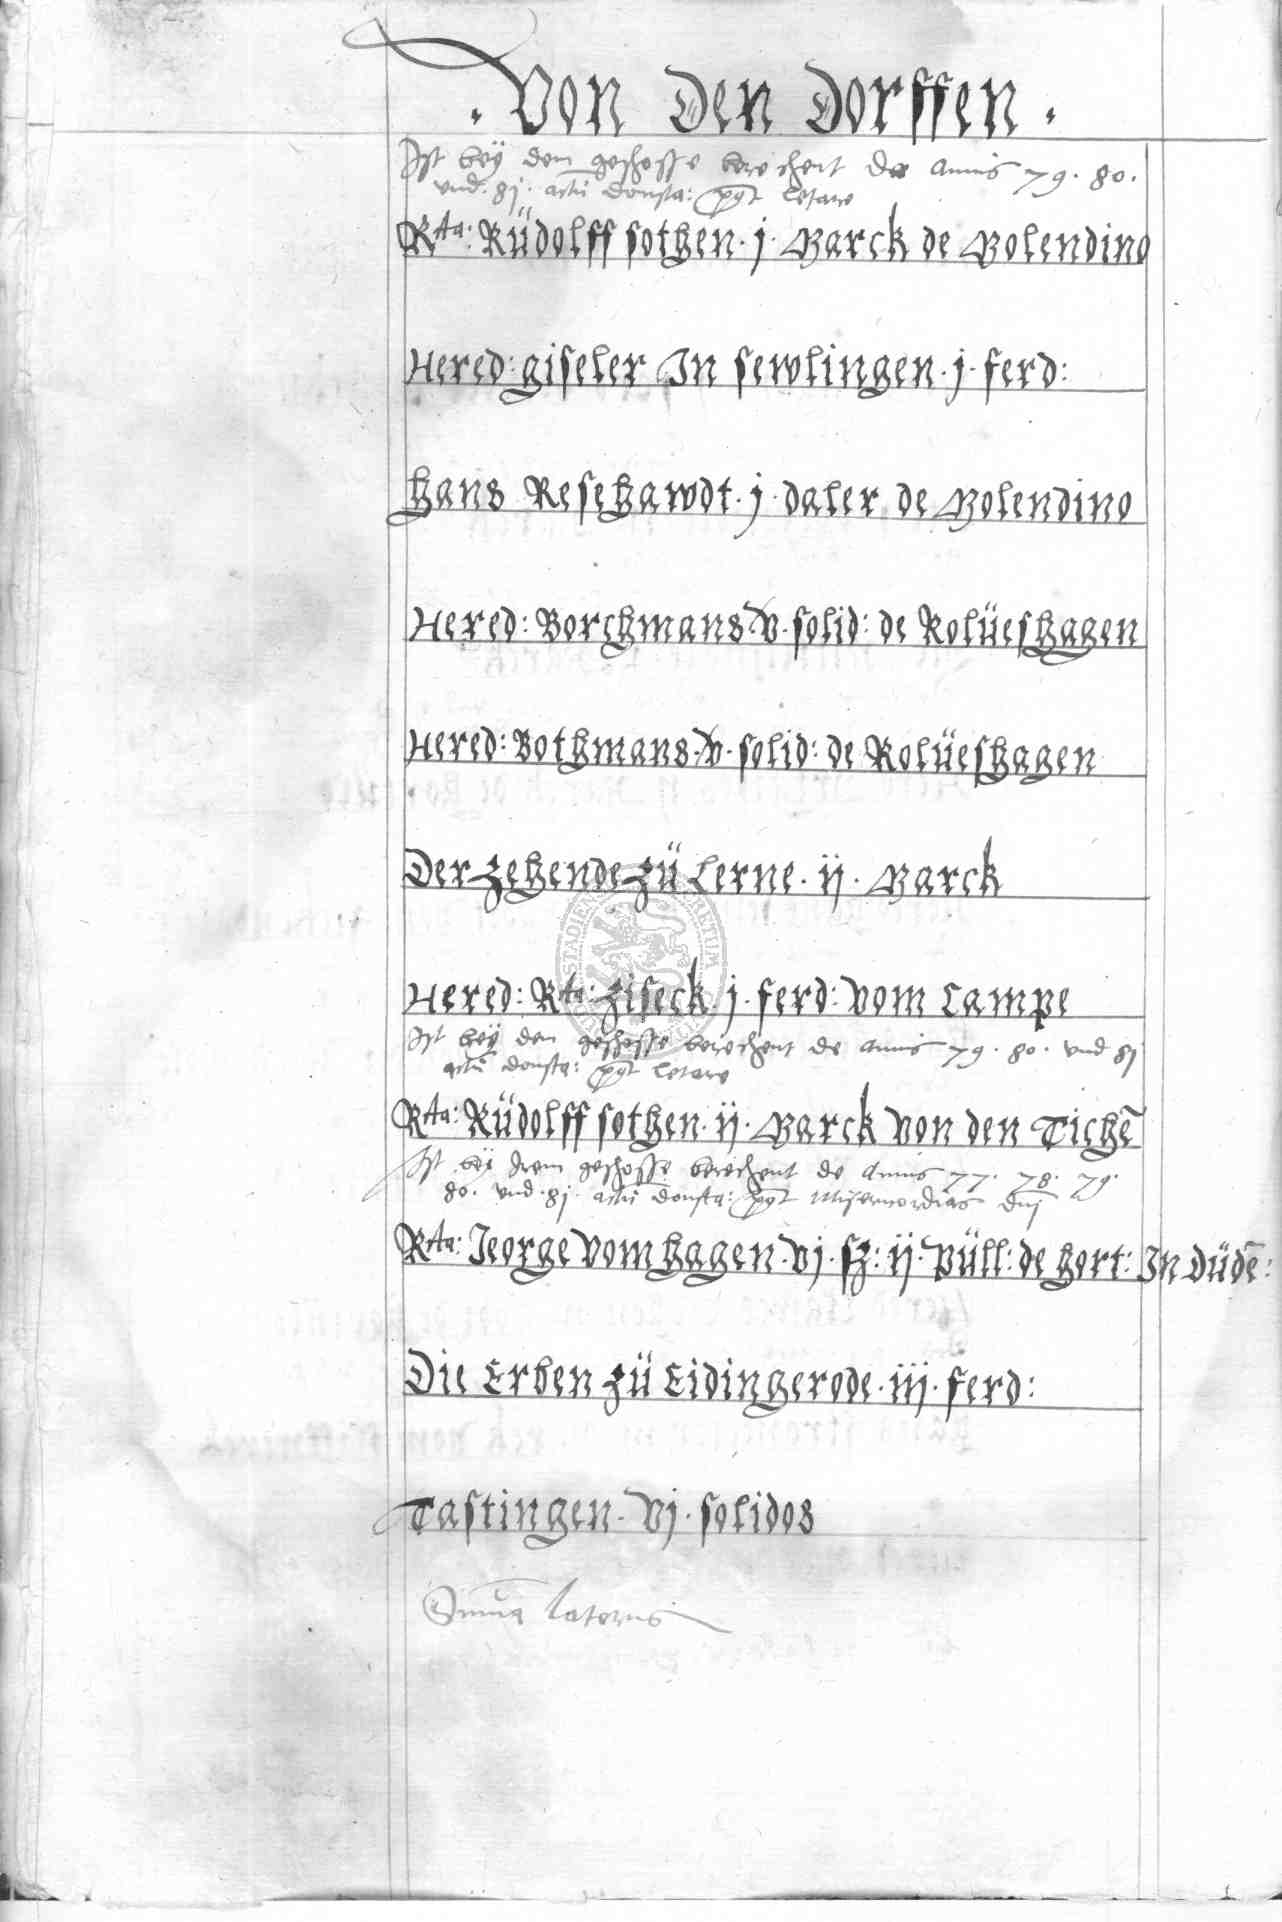 · Von Den Dorffen ·
Ist bey dem geschosse berechent de annis 79. 80.
vnd. 81. actu donsta: post letare
Rta: Rüdolff sothen. j. Marck de Bolendino
Hered: giseler In sewlingen. j. ferd:
hans Resehawdt. j. daler de Bolendino
Hered: Borchmans. v. solid: de Rolüeshagen
Hered: Bothmans. v. solid: de Rolüeshagen
Der zehende zü Lerne. ij. Marck
Hered: Rta: ziseck. j. ferd: vom Campe
Ist bey dem geschosse berechent de annis 79. 80. vnd 81
actu donsta: post letare
Rta: Rüdolff sothen. ij. Marck von den Tichē
Ist bey dem geschosse berechent de annis 77. 78. 79.
80. vnd. 81. actu donsta: post Misericordias dnj
Rta: Jeorge vom hagen. vj. sz: ij. püll: de hort: In düdē:
Die Erben zü Eidingerode. iij. ferd:
Tastingen. vj. solidos
Suma lateris